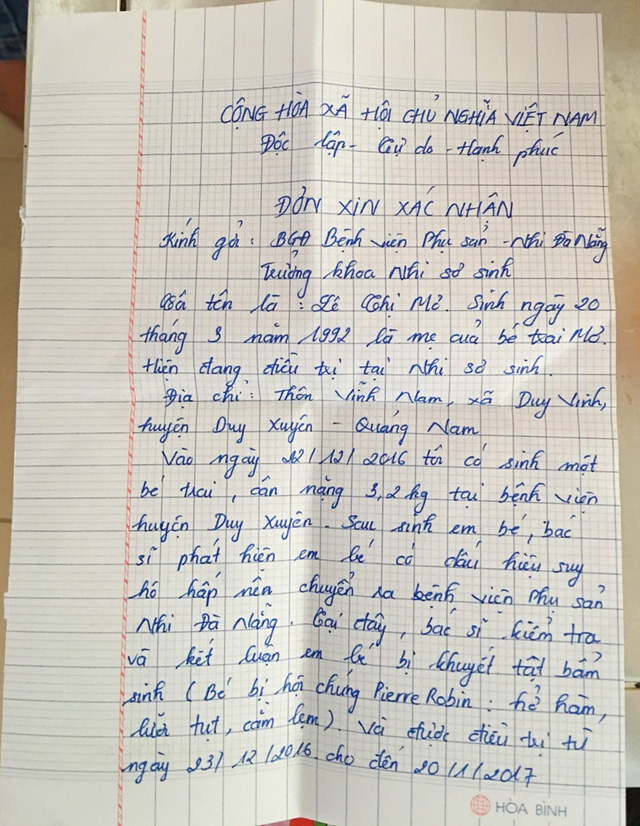 CỘNG HÒA XÃ HỘI CHỦ NGHĨA VIỆT NAM
Độc lập - Tự do - Hạnh phúc
ĐƠN XIN XÁC NHẬN
Kính gả : BGĐ Bệnh viện Phụ sản - Nhi Đà Nẵng
Trưởng khoa Nhi sơ sinh
Tôi tên là : Lê Thị Mơ. Sinh ngày 20
tháng 3 năm 1992 là mẹ của bé trai Mơ.
Hiện đang điều trị tại Nhi sơ sinh.
Địa chỉ : Thôn Vĩnh Nam, xã Duy Vinh,
huyện Duy Xuyên - Quảng Nam
Vào ngày 22/12/2016 tôi có sinh một
bé trai, cân nặng 3,2kg tại bệnh viện
huyện Duy Xuyên. Sau sinh em bé, bác
sĩ phát hiện em bé có dấu hiệu suy
hô hấp nên chuyển ra bệnh viện Phụ sản
Nhi Đà Nẵng. Tại đây, bác sĩ kiểm tra
và kết luận em bé bị khuyết tật bẩm
sinh (Bé bị hội chứng Pierre Robin : hở hàm,
lưỡi tụt, cằm lẹm). Và được điều trị từ
ngày 23/12/2016 cho đến 20/1/2017
HÒA BÌNH